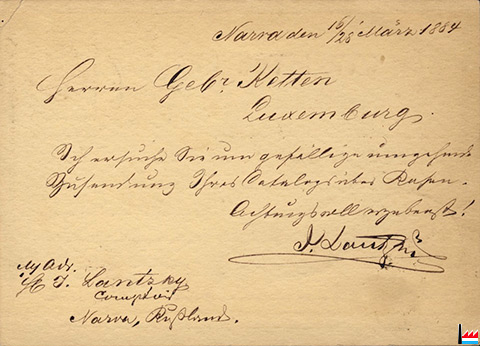 Narva den 16/28 März 1884
Herren Gebr. Ketten
Luxemburg.
Ich ersuche Sie um gefällige umgehende
Zusendung Ihres Catalogs über Rosen.
Achtungsvoll ergebenst!
J. Lantzky
My Adr.
J. Lantzky
Comptoir
Narva, Rußland.